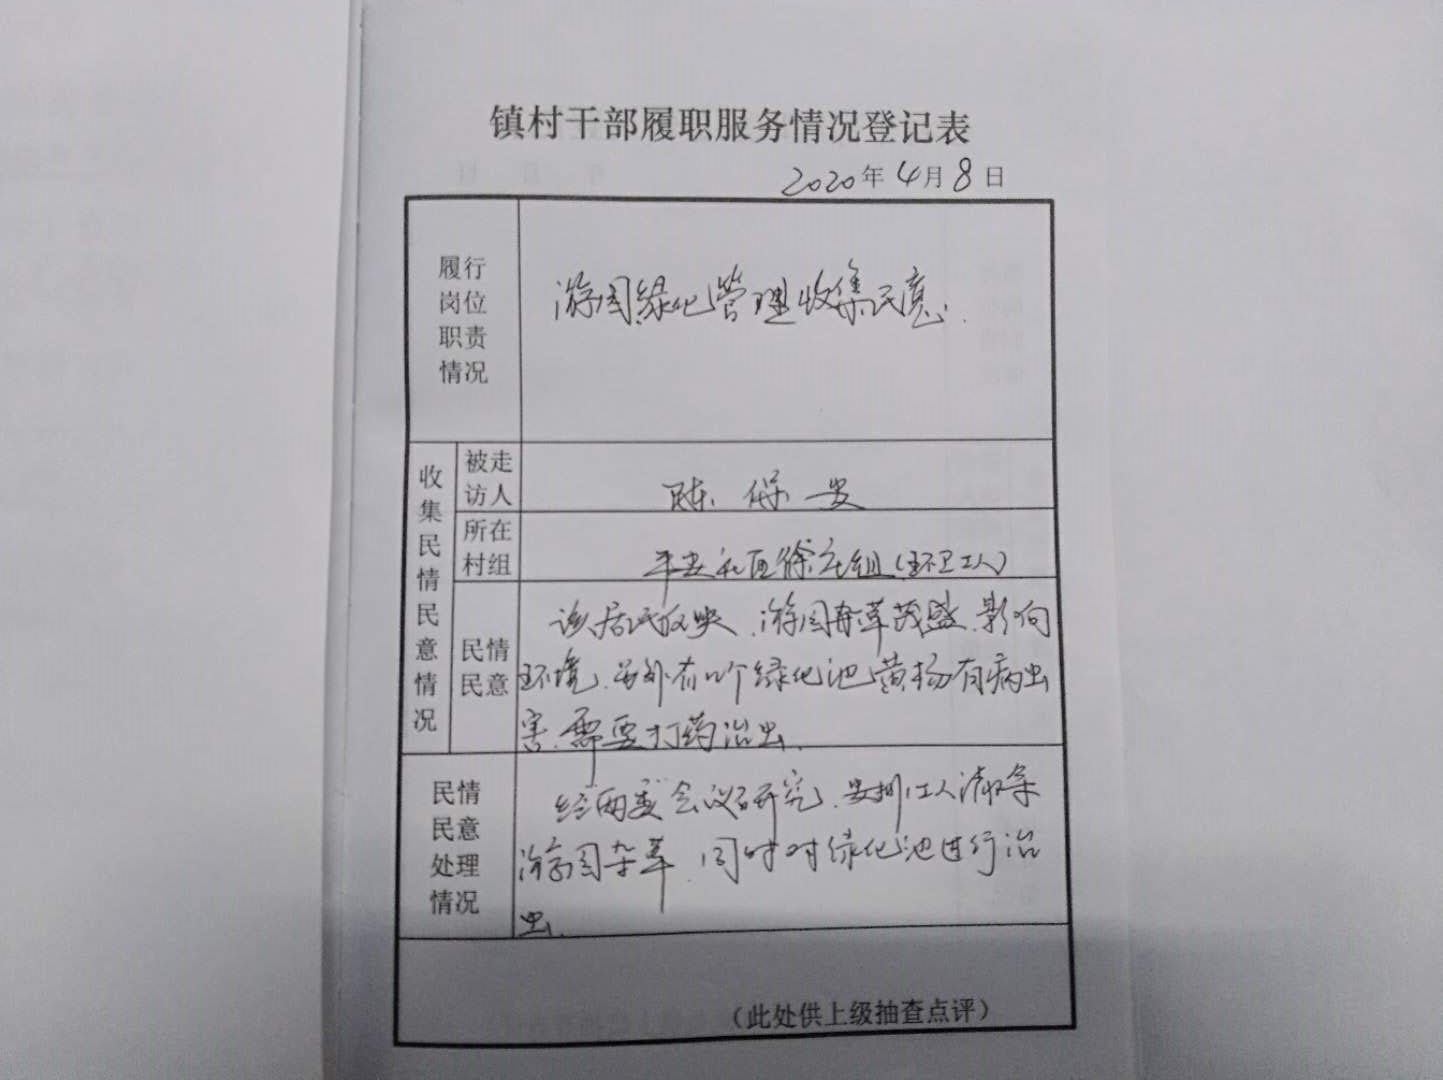 镇村干部履职服务情况登记表
2020年4月8日
履行
岗位
职责
情况
游园绿化管理收集民意.
收集民情民意情况
被走
访人
陈保安
所在
村组
平安社区徐庄组(环卫工人)
民情
民意
该居民反映、游园杂草茂盛、影响
环境、另外有几个绿化池黄杨有病虫
害、需要打药治虫、
民情
民意
处理
情况
经两委会议研究、安排工人清除
游园杂草、同时对绿化池进行治
虫、
(此处供上级抽查点评)